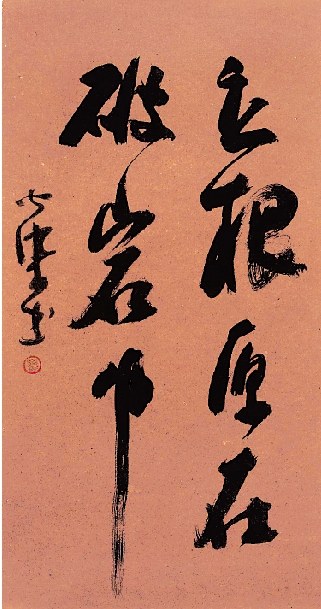 立根原在
破岩中